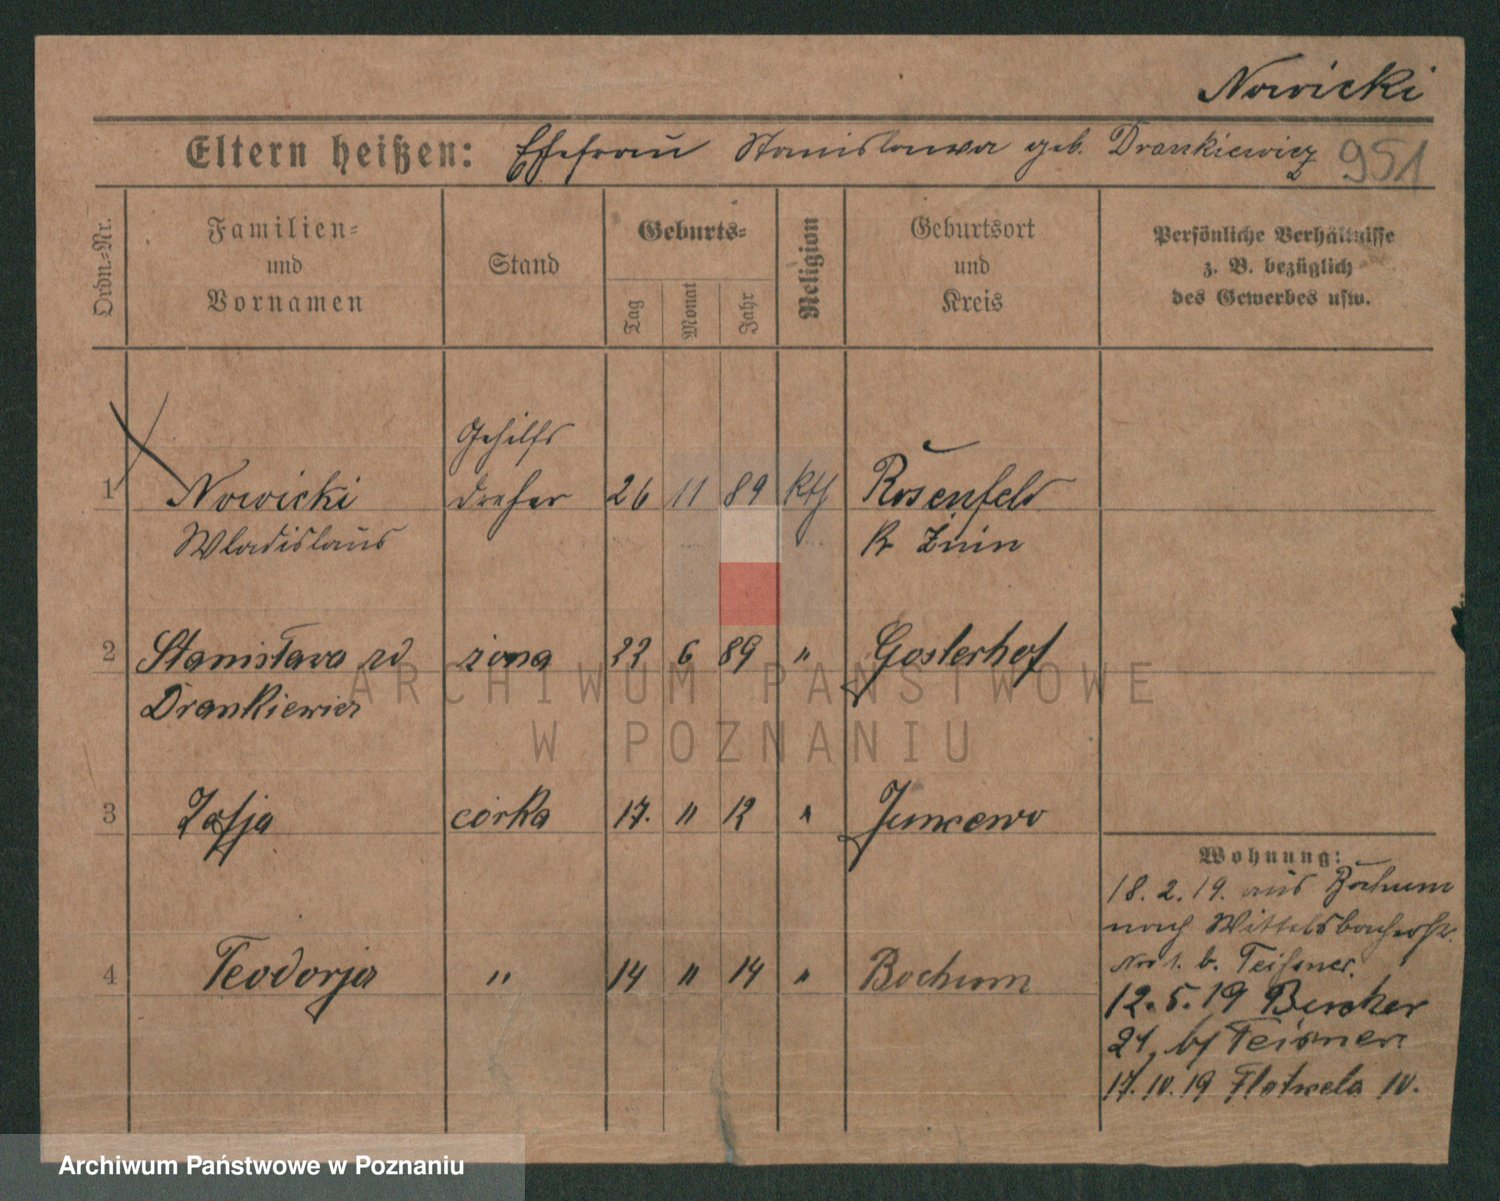 Nowicki
Eltern heißen: Ehefrau Stanislawa geb. Drankiewicz 951
Ordn.-Nr.
Familien-
und
Vornamen
Stand
Geburts-
Tag
Monat
Jahr
Religion
Geburtsort
und
Kreis
Persönliche Verhältnisse
z. B. bezüglich
des Gewerbes usw.
Gehilfs
1 Nowicki dreher 26 11 89 Kth Rosenfeld
Wladislaus Kr Znin
2 Stanisława zd żona 22 6 89 " Goslerhof
Drankiewicz
3 Zofja córka 17. " 12 " Juncewo
Wohnung:
18.2.19. aus Bochum
nach Wittelsbacherstr.
No 1. b. Teisner.
4 Teodorja " 14 " 14 " Bochum
12.5.19 Bircker
21, bf Teisner.
17.10.19 Flotwela 10.
ARCHIWUM PAŃSTWOWE
W POZNANIU
Archiwum Państwowe w Poznaniu